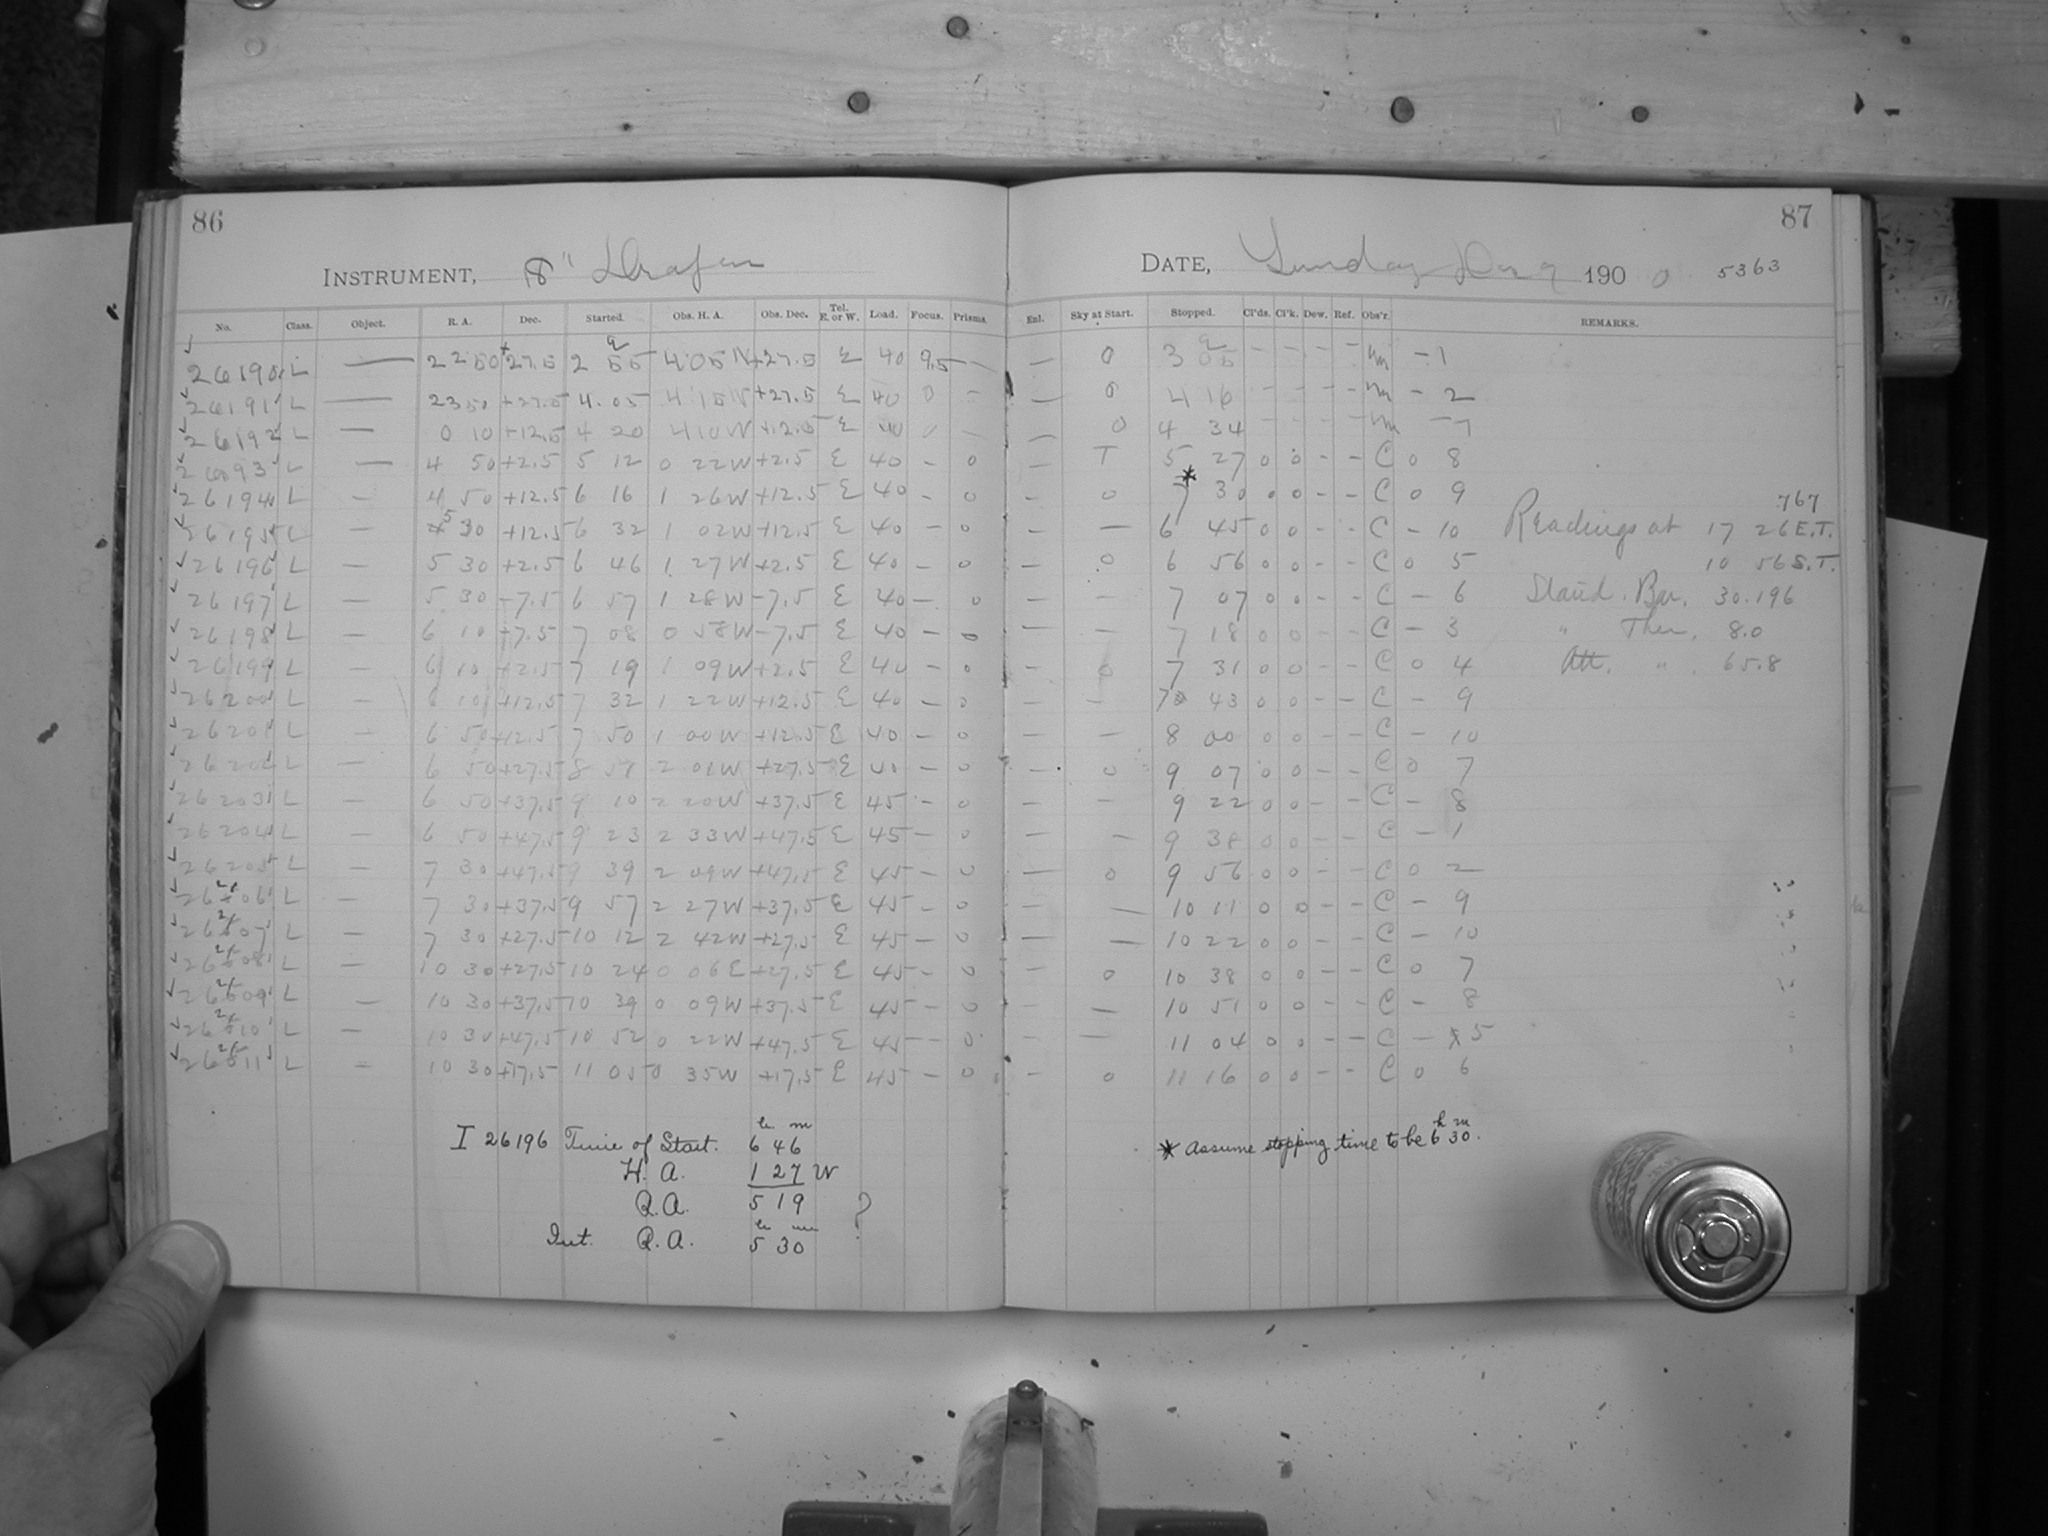 86
87
INSTRUMENT, 8" Draper
DATE, Sunday 190 0 5363
No. Class. Object. R. A. Dec. Started. Obs. H. A. Obs. Dec. Tel. E. or W. Load. Focus. Prisms. Enl. Sky at Start. Stopped. Cl'ds. Cl'k. Dew. Ref. Obs'r. REMARKS.
26190 L — 22 50 +27.5 2 55 4 05 W +27.5 E 40 9.5 — — 0 3 05 - - - - m - 1
26191 L — 23 50 +27.5 4.05 4 15 W +27.5 E 40 0 - — 0 4 16 - - - - m - 2
26192 L — 0 10 +12.5 4 20 4 10 W +12.5 E 40 0 - — 0 4 34 - - - - m - 7
26093 L — 4 50 +2.5 5 12 0 22 W +2.5 E 40 - 0 — T 5 27 0 0 - - C 0 8
26194 L — 4 50 +12.5 6 16 1 26 W +12.5 E 40 - 0 — 0 * 7 30 0 0 - - C 0 9 767
26195 L — 5 30 +12.5 6 32 1 02 W +12.5 E 40 - 0 — — 6 45 0 0 - - C - 10 Readings at 17 26 E.T.
26196 L — 5 30 +2.5 6 46 1 27 W +2.5 E 40 - 0 — 0 6 56 0 0 - - C 0 5 10 56 S.T.
26197 L — 5 30 -7.5 6 57 1 28 W -7.5 E 40 - 0 — — 7 07 0 0 - - C - 6 Stand. Bar. 30.196
26198 L — 6 10 +7.5 7 08 0 58 W -7.5 E 40 - 0 — — 7 18 0 0 - - C - 3 " Ther. 8.0
26199 L — 6 10 +2.5 7 19 1 09 W +2.5 E 40 - 0 — 0 7 31 0 0 - - C 0 4 Att. " 65.8
26200 L — 6 10 +12.5 7 32 1 22 W +12.5 E 40 - 0 — — 7 43 0 0 - - C - 9
26201 L — 6 50 +12.5 7 50 1 00 W +12.5 E 40 - 0 — — 8 00 0 0 - - C - 10
26202 L — 6 50 +27.5 8 57 2 06 W +27.5 E 40 - 0 — 0 9 07 0 0 - - C 0 7
26203 L — 6 50 +37.5 9 10 2 20 W +37.5 E 45 - 0 — — 9 22 0 0 - - C - 8
26204 L — 6 50 +47.5 9 23 2 33 W +47.5 E 45 - 0 — — 9 38 0 0 - - C - 1
26205 L — 7 30 +47.5 9 39 2 09 W +47.5 E 45 - 0 — 0 9 56 0 0 - - C 0 2
26206 L — 7 30 +37.5 9 57 2 27 W +37.5 E 45 - 0 — — 10 11 0 0 - - C - 9
26207 L — 7 30 +27.5 10 12 2 42 W +27.5 E 45 - 0 — — 10 22 0 0 - - C - 10
26208 L — 10 30 +27.5 10 24 0 06 E +27.5 E 45 - 0 — 0 10 38 0 0 - - C 0 7
26209 L — 10 30 +37.5 10 39 0 09 W +37.5 E 45 - 0 — — 10 51 0 0 - - C - 8
26210 L — 10 30 +47.5 10 52 0 22 W +47.5 E 45 - 0 — — 11 04 0 0 - - C - 5
26211 L — 10 30 +17.5 11 05 0 35 W +17.5 E 45 - 0 — 0 11 16 0 0 - - C 0 6
I 26196 Time of Start. 6h 46m
H. A. 1 27 W
R.A. 5 19 ?
Int. R.A. 5h 30m
* Assume stopping time to be 6h 30m.